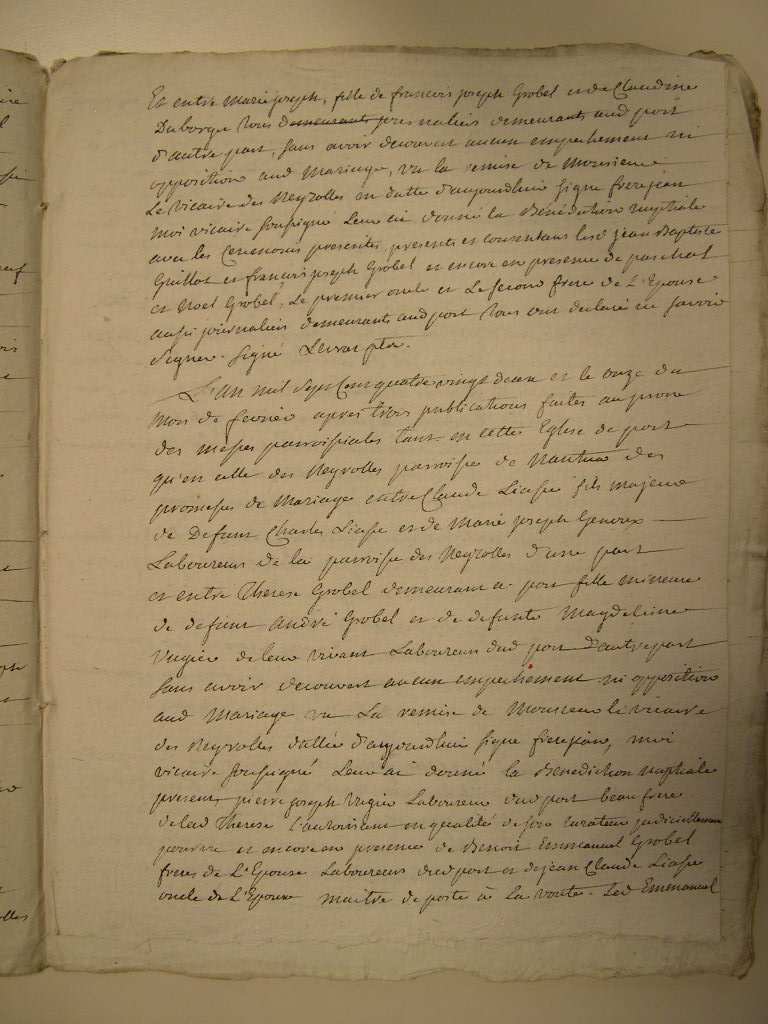 Et entre Marie joseph, fille de francois joseph Grobel et de Claudine
Duborge tous demeurants journaliers demeurants aud port
d'autre part, sans avoir decouvert aucun empechement ni
opposition aud Mariage, vu la remise de Monsieur
Le vicaire des Neyrolles en datte d'aujourdhui signe frerejean
Moi vicaire soussigné Leur ai donné la Bénédiction nuptiale
avec les Ceremonies prescrites, presents et consentans les jean Baptiste
Guillot et francois joseph Grobel et encore en presence de paschal
et Noel Grobel, Le premier oncle et Le second frere de L'Epouse
aussi journaliers demeurants aud port tous ont declaré ne savoir
signer. Signé
L'an mil sept Cent quatre vingt deux et le onze du
Mois de fevrier apres trois publications faites au prone
des messes parroissiales tant en cette Eglise de port
qu'en celle des Neyrolles parroisse de Nantua des
promesses de Mariage entre Claude Liasse fils majeur
de Defunt Charles Liasse et de Marie joseph Genoux
Laboureur de la parroisse des Neyrolles d'une part
et entre Therese Grobel demeurant a port fille mineure
de defunt André Grobel et de defunte Magdeleine
Vugier de leur vivant Laboureurs dud port d'autre part
sans avoir decouvert aucun empechement ni opposition
aud Mariage vu La remise de Monsieur le vicaire
des Neyrolles dattée d'aujourdhui signe frerejean, moi
vicaire soussigné Leur ai donné la Bénédiction nuptiale
present, pierre joseph Vugier Laboureur dud port beau frere
de lad Therese L'autorisant en qualité de son curateur judiciellement
pourvue et encore en presence de Benoit Emmanuel Grobel
freres de L'Epouse Laboureurs dud port et de jean Claude Liasse
oncle de L'Epoux maitre de poste à La voute. Led Emmanuel